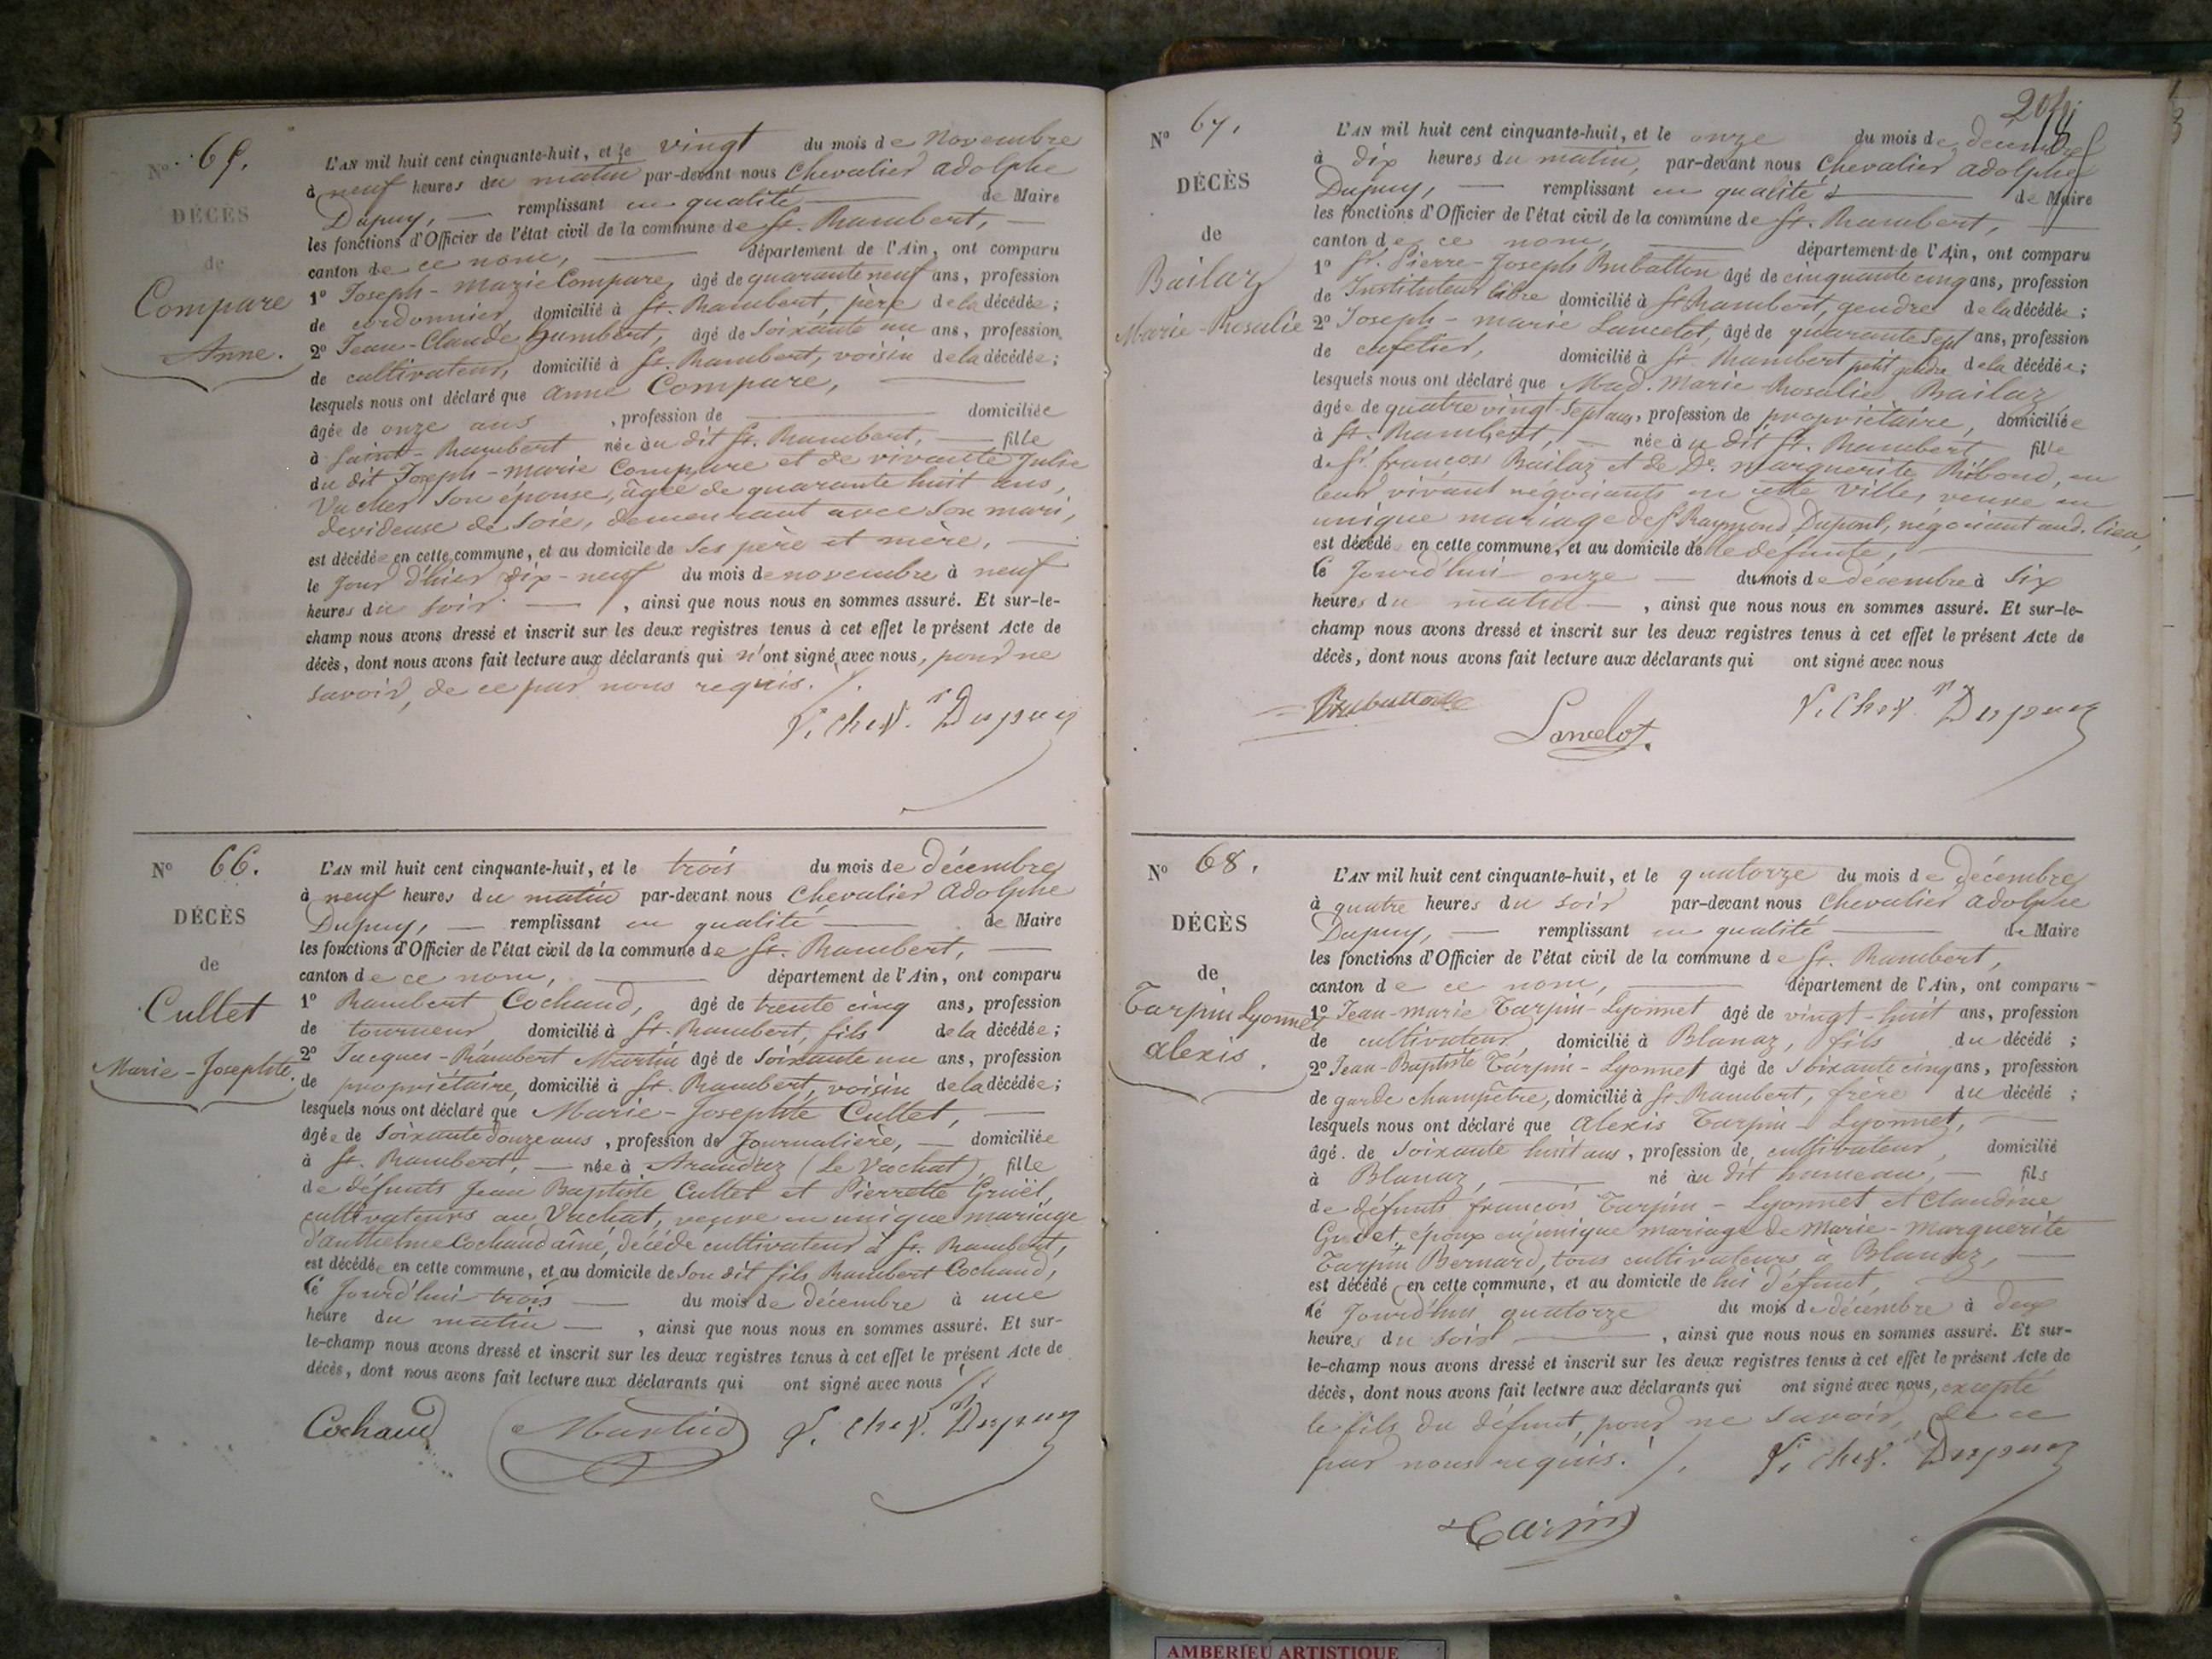 Nº 65.
DÉCÈS
de
Compare
Anne.
L'AN mil huit cent cinquante-huit, et le vingt du mois de Novembre
à neuf heures du matin par-devant nous Chevalier Adolphe
Dupuy, — remplissant en qualité — de Maire
les fonctions d'Officier de l'état civil de la commune de St. Rambert, —
canton de ce nom, — département de l'Ain, ont comparu
1º Joseph-Marie Compare, âgé de quarante neuf ans, profession
de cordonnier, domicilié à St. Rambert, père de la décédée;
2º Jean-Claude Humbert, âgé de soixante un ans, profession
de cultivateur, domicilié à St. Rambert, voisin de la décédée;
lesquels nous ont déclaré que Anne Compare, —
âgée de onze ans, profession de — domiciliée
à Saint-Rambert née au dit St. Rambert, — fille
du dit Joseph-Marie Compare et de vivante Julie
Vacher son épouse, âgée de quarante huit ans,
devideuse de soie, demeurant avec son mari,
est décédée en cette commune, et au domicile de ses père et mère, —
le jour d'hier dix-neuf du mois de novembre à neuf
heures du soir —, ainsi que nous nous en sommes assuré. Et sur-le-
champ nous avons dressé et inscrit sur les deux registres tenus à cet effet le présent Acte de
décès, dont nous avons fait lecture aux déclarants qui n'ont signé avec nous, pour ne
savoir, de ce par nous requis. /.
Dupuy
Nº 66.
DÉCÈS
de
Cullet
Marie-Josephte.
L'AN mil huit cent cinquante-huit, et le trois du mois de décembre
à neuf heures du matin par-devant nous Chevalier Adolphe
Dupuy, — remplissant en qualité — de Maire
les fonctions d'Officier de l'état civil de la commune de St. Rambert, —
canton de ce nom, — département de l'Ain, ont comparu
1º Rambert Cochaud, âgé de trente cinq ans, profession
de tourneur, domicilié à St. Rambert, fils de la décédée;
2º Jacques-Rambert Martin âgé de soixante un ans, profession
de propriétaire, domicilié à St. Rambert, voisin de la décédée;
lesquels nous ont déclaré que Marie-Josephte Cullet, —
âgée de soixante douze ans, profession de Journalière, — domiciliée
à St. Rambert, — née à Arandaz (Le Vachat), fille
de défunts Jean Baptiste Cullet et Pierrette Gruël,
cultivateurs au Vachat, veuve en unique mariage
d'anthelme Cochaud aîné, décédé cultivateur à St. Rambert,
est décédée en cette commune, et au domicile de son dit fils Rambert Cochaud,
le jourd'hui trois — du mois de décembre à une
heure du matin —, ainsi que nous nous en sommes assuré. Et sur-
le-champ nous avons dressé et inscrit sur les deux registres tenus à cet effet le présent Acte de
décès, dont nous avons fait lecture aux déclarants qui ont signé avec nous /.
Cochaud Martin Dupuy
Nº 67.
DÉCÈS
de
Bailaz
Marie-Rosalie
L'AN mil huit cent cinquante-huit, et le onze du mois de décembre
à dix heures du matin, par-devant nous Chevalier Adolphe
Dupuy, — remplissant en qualité — de Maire
les fonctions d'Officier de l'état civil de la commune de St. Rambert, —
canton de ce nom, — département de l'Ain, ont comparu
1º Sr. Pierre-Joseph Brubatton âgé de cinquante cinq ans, profession
de Instituteur libre domicilié à St Rambert, gendre de la décédée;
2º Joseph-Marie Lancelot, âgé de quarante sept ans, profession
de cafetier, domicilié à St Rambert petit gendre de la décédée;
lesquels nous ont déclaré que Mad. Marie Rosalie Bailaz
âgée de quatre vingt sept ans, profession de propriétaire, domiciliée
à St. Rambert, — née au dit St. Rambert, fille
de Sr. françois Bailaz et de De. Marguerite Ribond, en
leur vivant négociants en cette ville, veuve en
unique mariage de Sr Raymond Dupont, négociant aud. lieu,
est décédé en cette commune, et au domicile de le défunte, —
le Jourd'hui onze — du mois de décembre à six
heures du matin —, ainsi que nous nous en sommes assuré. Et sur-le-
champ nous avons dressé et inscrit sur les deux registres tenus à cet effet le présent Acte de
décès, dont nous avons fait lecture aux déclarants qui ont signé avec nous
Brubatton Lancelot. Dupuy
Nº 68.
DÉCÈS
de
Tarpin Lyonnet
alexis.
L'AN mil huit cent cinquante-huit, et le quatorze du mois de décembre
à quatre heures du soir par-devant nous Chevalier Adolphe
Dupuy, — remplissant en qualité — de Maire
les fonctions d'Officier de l'état civil de la commune de St. Rambert,
canton de ce nom, — département de l'Ain, ont comparu
1º Jean-Marie Tarpin-Lyonnet âgé de vingt-huit ans, profession
de cultivateur, domicilié à Blanaz, fils du décédé;
2º Jean-Baptiste Tarpin-Lyonnet âgé de soixante cinq ans, profession
de garde champêtre, domicilié à St. Rambert, frère du décédé;
lesquels nous ont déclaré que alexis Tarpin-Lyonnet, —
âgé de soixante huit ans, profession de cultivateur, domicilié
à Blanaz, — né au dit hameau, — fils
de défunts françois Tarpin-Lyonnet et Claudine
Gudet, époux en unique mariage de Marie-Marguerite
Tarpin Bernard, tous cultivateurs à Blanaz, —
est décédé en cette commune, et au domicile de lui défunt, —
le jourd'hui quatorze du mois de décembre à deux
heures du soir —, ainsi que nous nous en sommes assuré. Et sur-
le-champ nous avons dressé et inscrit sur les deux registres tenus à cet effet le présent Acte de
décès, dont nous avons fait lecture aux déclarants qui ont signé avec nous, excepté
le fils du défunt, pour ne savoir, de ce
par nous requis. /. Dupuy
Tarpin
AMBERIEU ARTISTIQUE